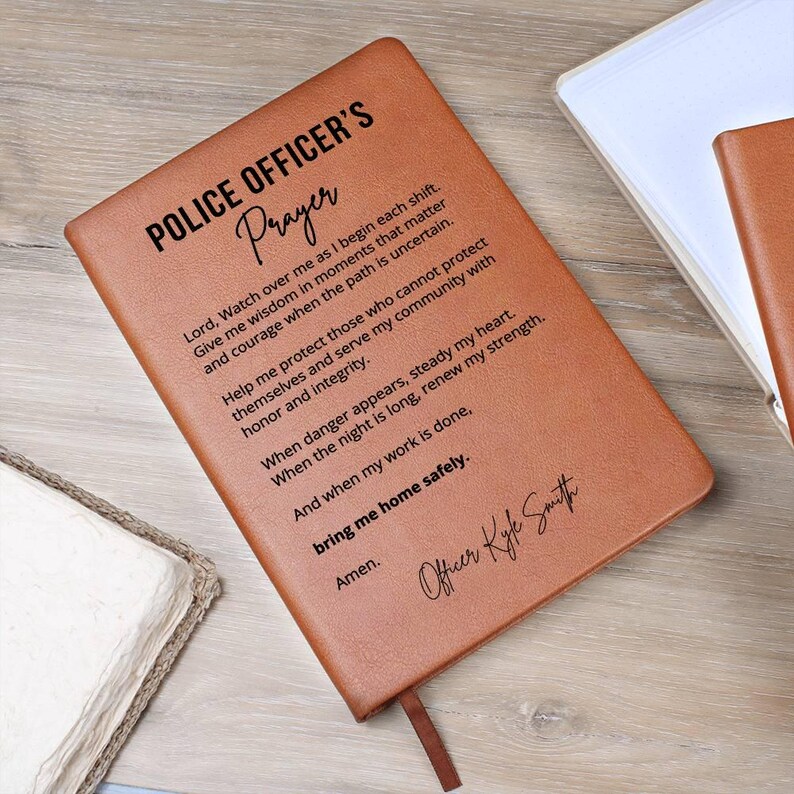 POLICE OFFICER'S
Prayer
Lord, Watch over me as I begin each shift.
Give me wisdom in moments that matter
and courage when the path is uncertain.
Help me protect those who cannot protect
themselves and serve my community with
honor and integrity.
When danger appears, steady my heart.
When the night is long, renew my strength.
And when my work is done,
bring me home safely.
Amen.
Officer Kyle Smith